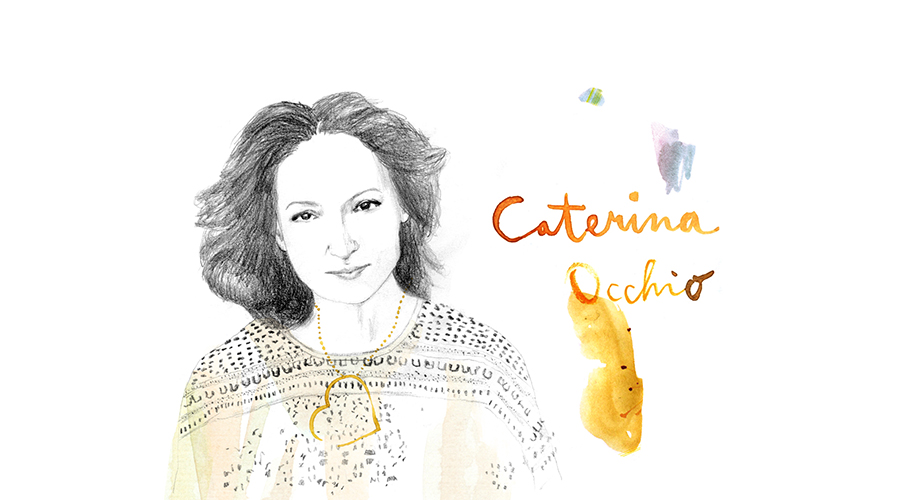 Caterina
Occhio